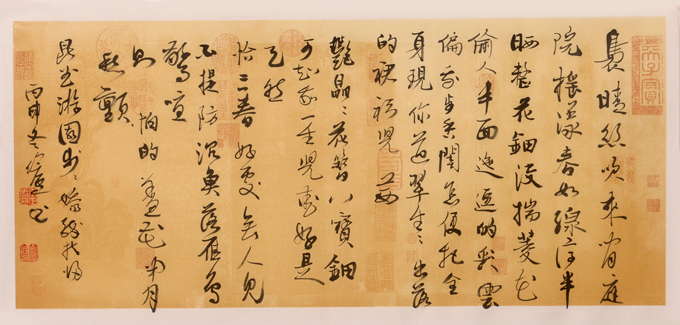 裊晴絲吹来闲庭
院摇漾春如線停半
晌整花鈿没揣菱花
偷人半面迤逗的彩雲
偏我步香閨怎便把全
身現你道翠生々出落
的裙衫児茜
艷晶々花簪八寶鈿
可知我一生児愛好是
天然
恰三春好處無人見
不提防沉魚落雁鳥
驚喧
則怕的羞花閉月
愁顫
昆曲游園步々嬌醉扶归
丙申冬 书